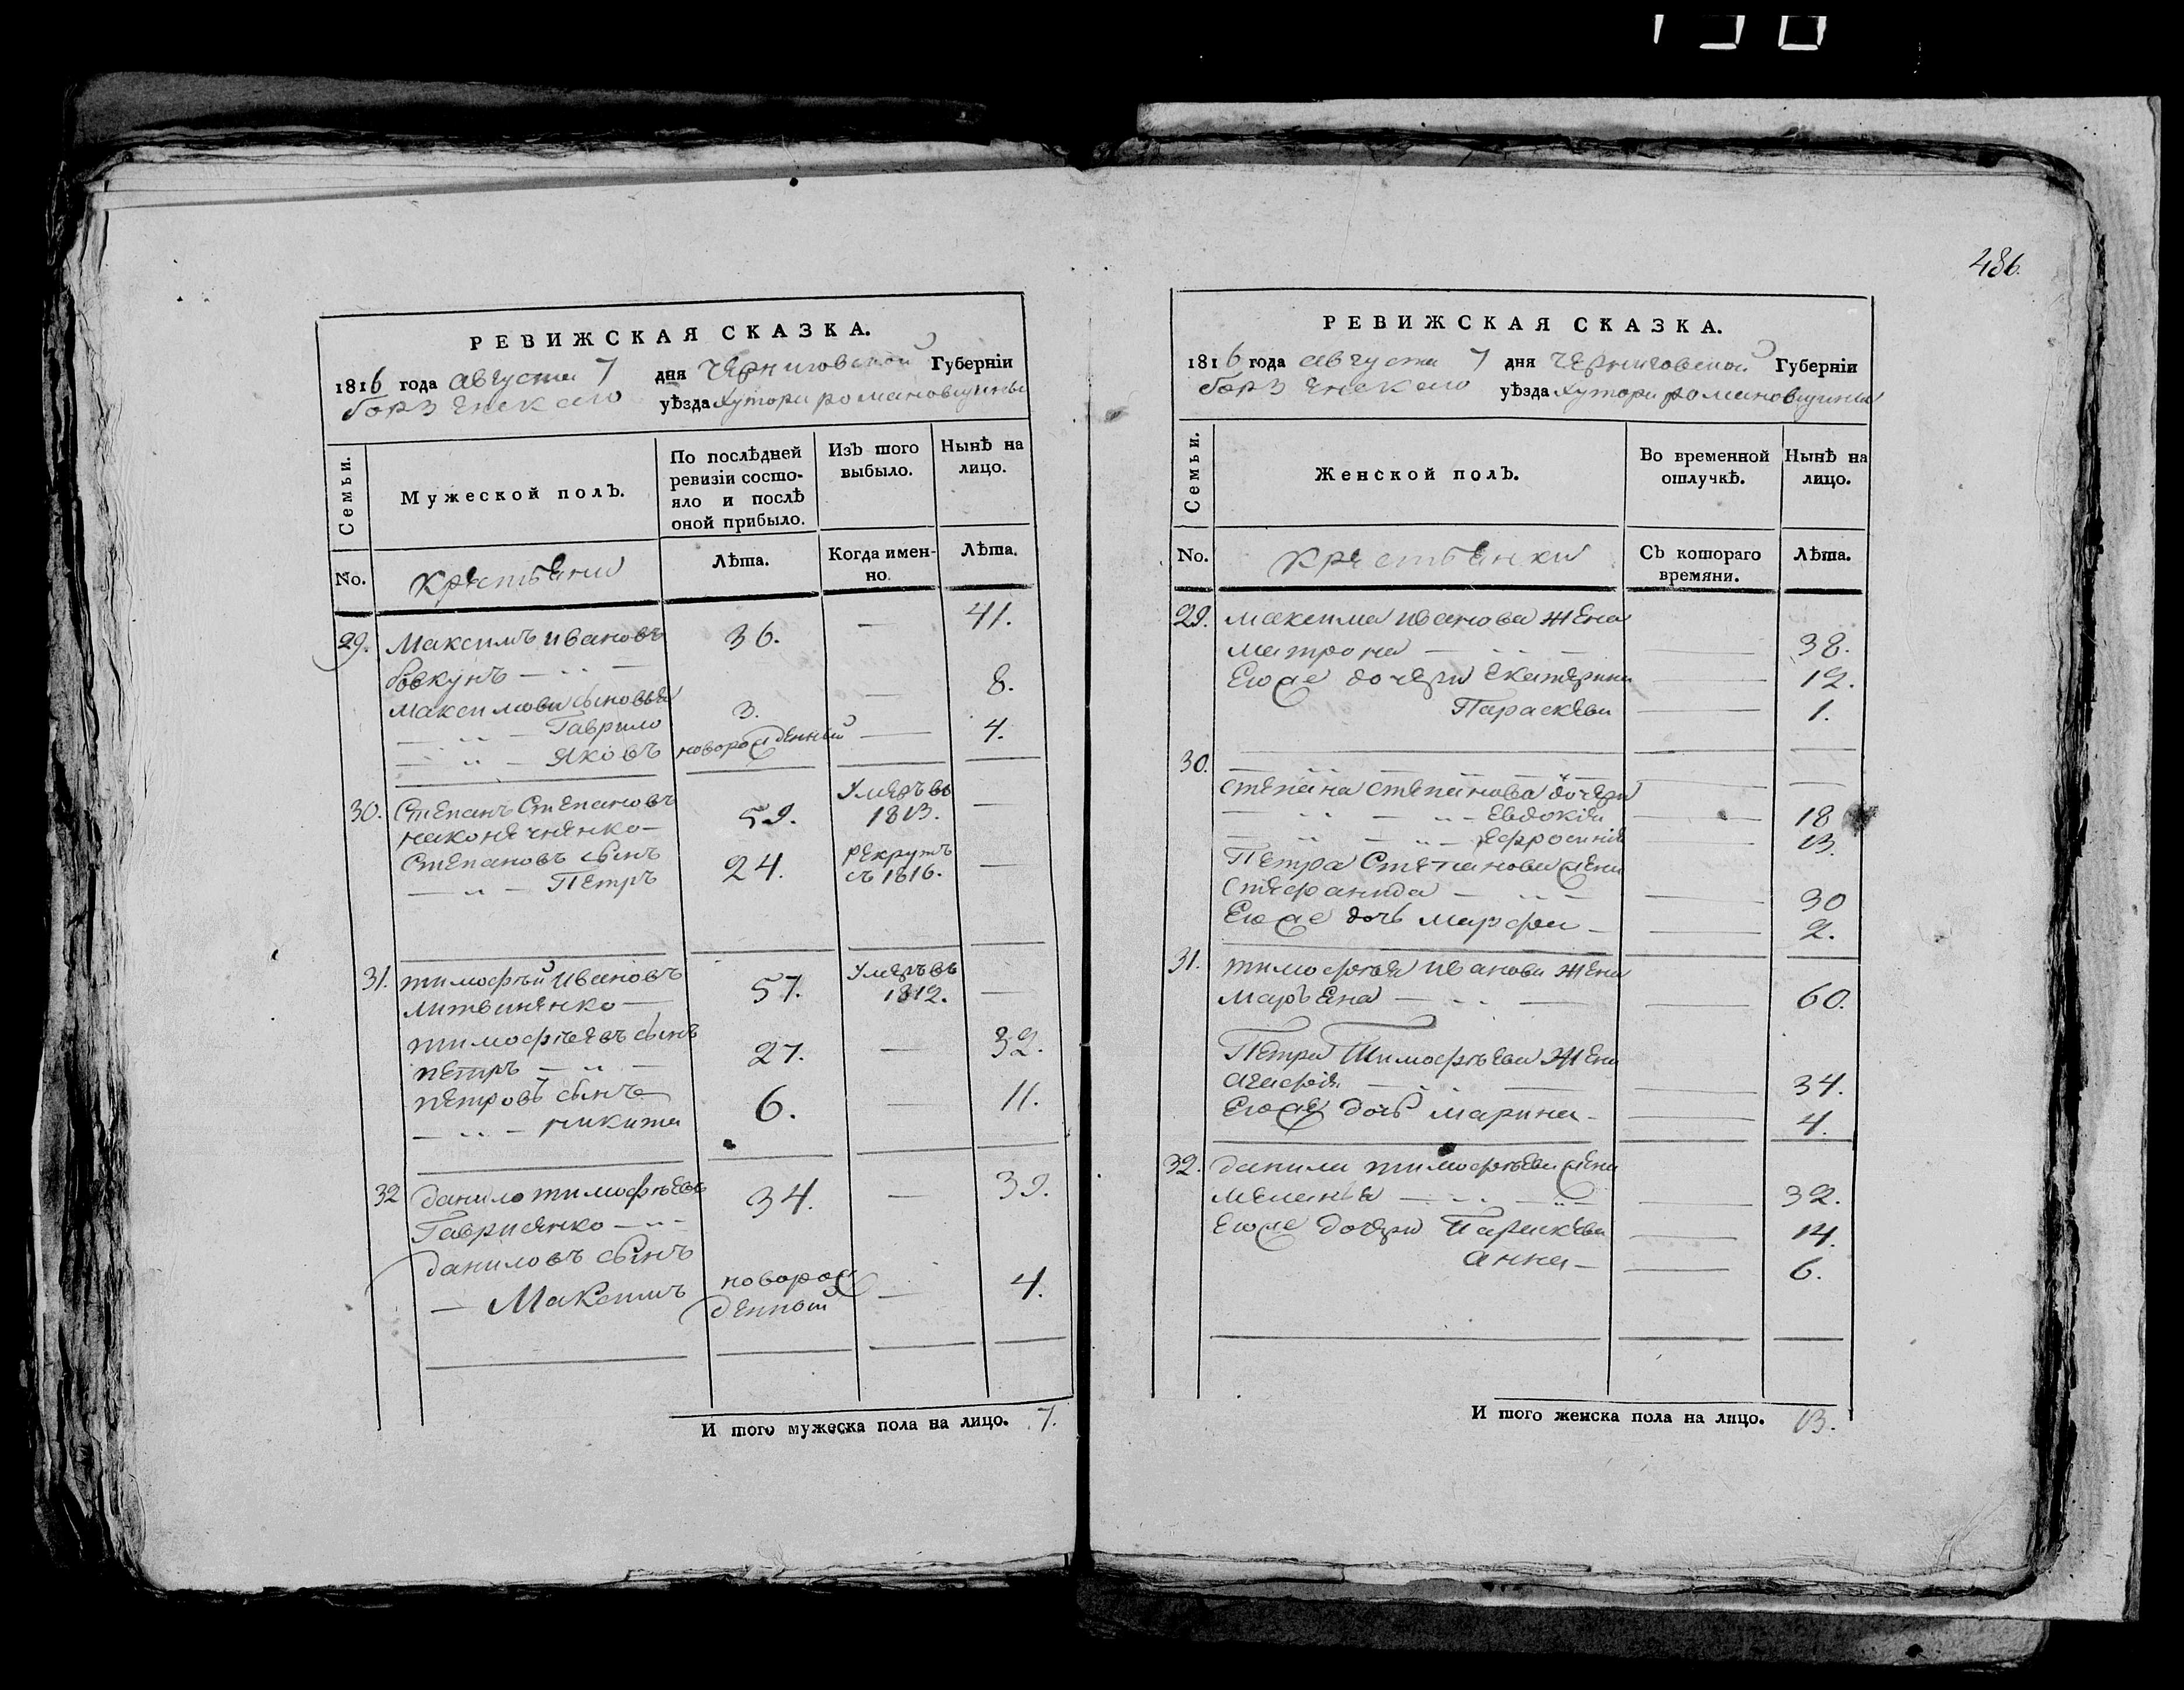 486.
РЕВИЖСКАЯ СКАЗКА.
1816 года августа 7 дня Черниговской Губерніи
борзенскаго уѣзда хутора романовщины
Семьи.
Мужеской полъ.
По послѣдней ревизіи состояло и послѣ оной прибыло.
Изъ того выбыло.
Нынѣ на лицо.
No.
крестьяни
Лѣта.
Когда именно.
Лѣта.
29. Максимъ ивановъ 36. — 41.
бовкунъ —
Максимови сыновья
Гаврило 3. — 8.
Яковъ новорожденный — 4.
30. Степанъ Степановъ 59. Умеръ въ 1813. —
наконечненко —
Степановъ сынъ
Петръ 24. рекрутъ съ 1816. —
31. тимофѣй Ивановъ 57. Умеръ въ 1812. —
литвиненко —
тимофѣевъ сынъ
петръ — 27. — 32.
петровъ сынъ
никита 6. — 11.
32 данило тимофѣевъ 34. — 39.
Гаврисенко —
даниловъ сынъ
— Максимъ новорожденной — 4.
И того мужеска пола на лицо. 7.
РЕВИЖСКАЯ СКАЗКА.
1816 года августа 7 дня Черниговской Губерніи
борзенскаго уѣзда хутора романовщины
Семьи.
Женской полъ.
Во временной отлучкѣ.
Нынѣ на лицо.
No.
крестьянки
Съ котораго времяни.
Лѣта.
29. максима иванова жена
матрона — 38.
Егоже дочери екатерина — 12.
Параскева — 1.
30.
степана степанова дочери
Евдокія — 18
Ефросинія 13.
Петра Степанова жена
Стефанида — 30
Егоже дочь марфа — 2.
31. тимофѣя иванова жена
марьена — 60.
Петра Тимофѣева жена
агафія — 34.
Егоже дочь марина — 4.
32. данила тимофѣева жена
меланья — 32.
Егоже дочери Параскева — 14.
анна — 6.
И того женска пола на лицо. 13.